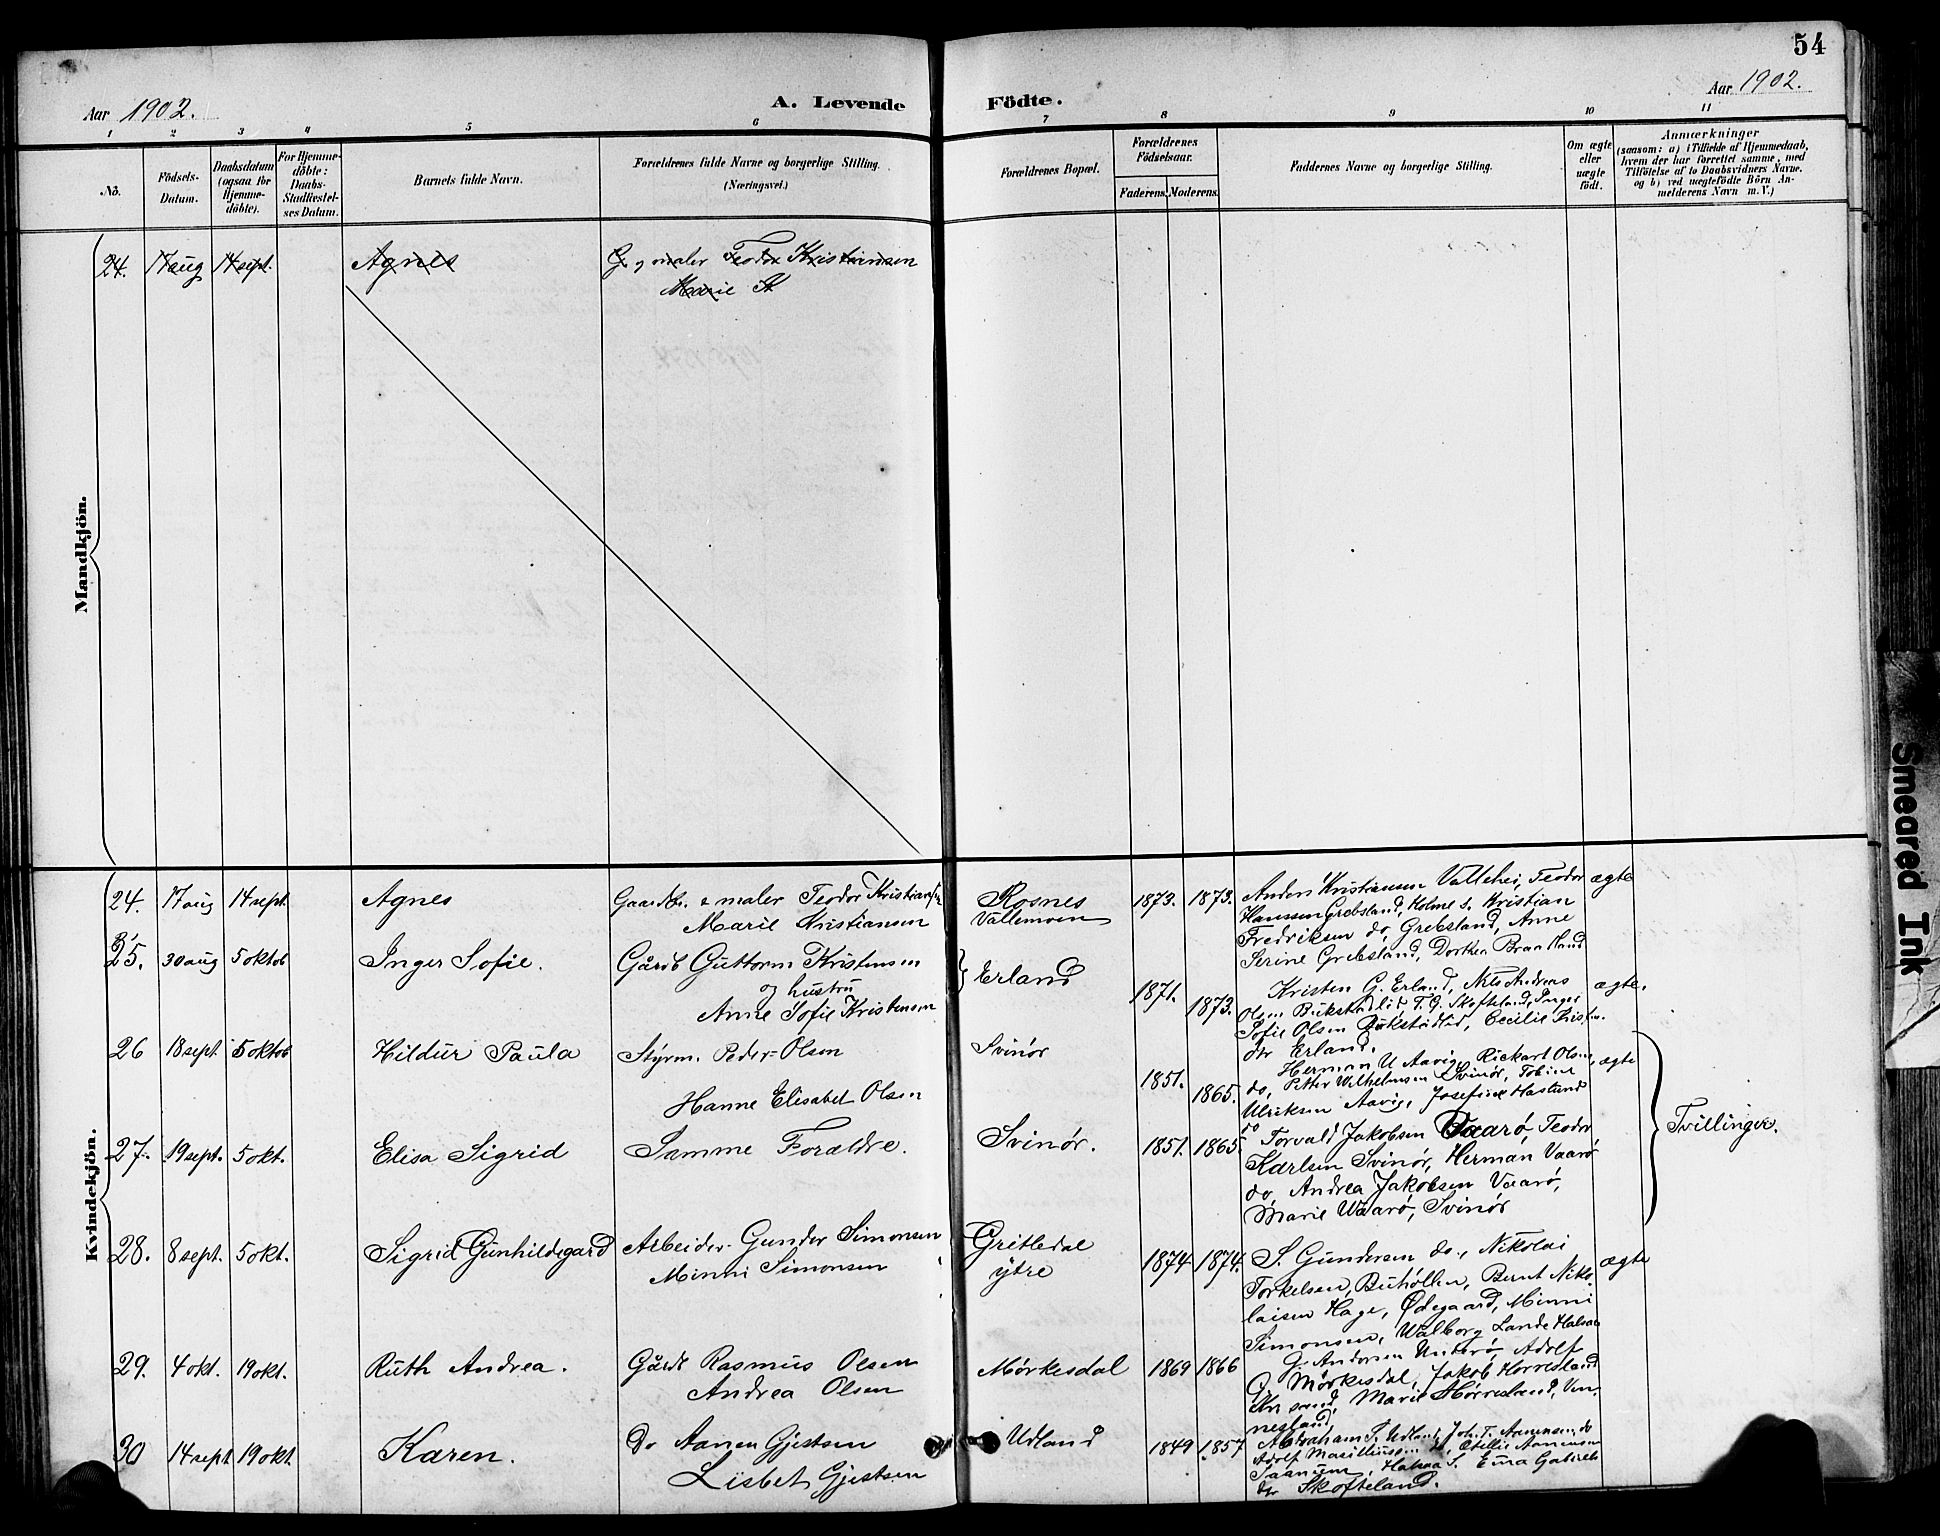 54
Aar 1902.
A. Levende Födte.
Aar 1902.
1 2 3 4 5 6 7 8 9 10 11
No.
Födsels-Datum.
Daabsdatum (ogsaa for Hjemme-döbte).
For Hjemme-döbte: Daabs-Stadfæstel-ses Datum.
Barnets fulde Navn.
Forældrenes fulde Navne og borgerlige Stilling.
(Næringsvei.)
Forældrenes Bopæl.
Forældrenes Födselsaar.
Faderens. Moderens.
Faddernes Navne og borgerlige Stilling.
Om ægte eller uægte födt.
Anmærkninger
(saasom: a) i Tilfælde af Hjemmedaab,
hvem der har forrettet samme, med
Tilföielse af to Daabsvidners Navne.
og b) ved uægtefödte Börn An-
melderens Navn m. V.)
Mandkjön.
24. 17 aug 14 sept. Agnes G. og maler Teodor Kristiansen
Marie K
Kvindekjön.
24. 17 aug 14 sept. Agnes Gaardbr. & maler Teodor Kristiansen
Marie Kristiansen
Rosnes
Vallemoen
1873. 1873.
Anders Kristiansen Vallehei, Teodor
Hanssen Grebsland, Holme s. Kristian
Fredriksen do, Grebsland, Anne
Serine Grebsland, Dorthea Braaland
ægte
25. 30 aug 5 oktob Inger Sofie. Gårdb Guttorm Kristensen
og hustru
Anne Sofie Kristensen
Erland
1871. 1873.
Kristen G. Erland, Nils Andreas
Olsen Bukstedlid, T. G. Skofteland, Inger
Sofie Olsen Bukstedlid, Cecilie Kristen-
dtr Erland.
ægte.
26 18 sept. 5 oktob Hildur Paula Styrm. Peder Olsen
Hanne Elisabet Olsen
Svinör
1851. 1865.
Herman U Aavig, Rickart Olsen
do, Petter Wilhelmsen Svinör, Tobine
Ulriksen Aavig, Josefine Haslund
do
ægte
27. 19 sept. 5 okt. Elisa Sigrid Samme Foraldre.
Svinör.
1851. 1865.
Torvald Jakobsen Vaarö, Teodor
Karlsen Svinör, Herman Vaarö
do, Andrea Jakobsen Vaarö,
Marie Waarö, Svinör
Tvillinger.
28. 8 sept. 5 okt. Sigrid Gunhildegard Arbeider Gunder Simonsen
Minni Simonsen
Gritledal
ytre
1874 1874.
S. Gundersen do., Nikolai
Torkelsen, Buhöllen, Bernt Niko-
laisen Hage, Ødegaard, Minni
Simonsen, Walborg Lande Halsaa
ægte
29. 4 okt. 19 okt. Ruth Andrea. Gårdb Rasmus Olsen
Andrea Olsen
Mörkesdal
1869 1866
G. Andersen Underö, Adolf
G. Mörkesdal, Jakob Horresland
Kr sand, Marie Horresland, Ven-
nesland
30 14 sept 19 okt Karen. Do Aanen Gjestsen
Lisbet Gjestsen
Udland
1849 1857
Abraham T. Udland, Joh. T. Aanensen do
Adolf Otellie Aanensen
Halsaa S. Ema Gabriels
dtr Skofteland.
Smeared Ink